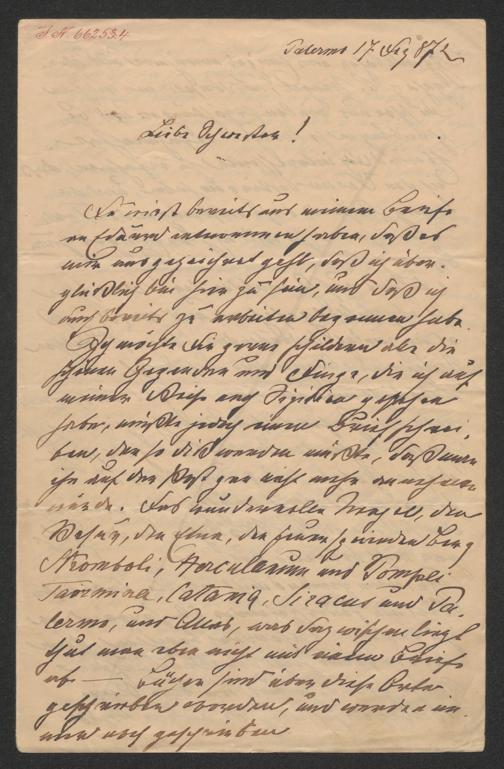 I.N. 66253.4
Palermo 17 Dez 872
Liebe Schwester!
Du wirst bereits aus meinem Briefe
an Eduard entnommen haben, daß es
mir ausgezeichnet geht, daß ich über-
glücklich bin hier zu sein, und daß ich
auch bereits zu arbeiten begonnen habe.
Ich möchte Dir gerne schildern alle die
schönen Gegenden und Dinge, die ich auf
meiner Reise nach Sizilien gesehen
habe, müßte jedoch einen Brief schrei-
ben, der so dick werden müßte, daß man
ihn auf der Post gar nicht mehr annehmen
würde. Das wundervolle Neapel, der
Vesuv, der Etna, der feuerspeiende Berg
Stromboli, Herculanum und Pompeii
Taormina, Catania, Siracus und Pa-
lermo, und Alles, was dazwischen liegt
thut man eben nicht mit einem Briefe
ab — Bücher sind über diese Orte
geschrieben worden, und werden im-
mer noch geschrieben